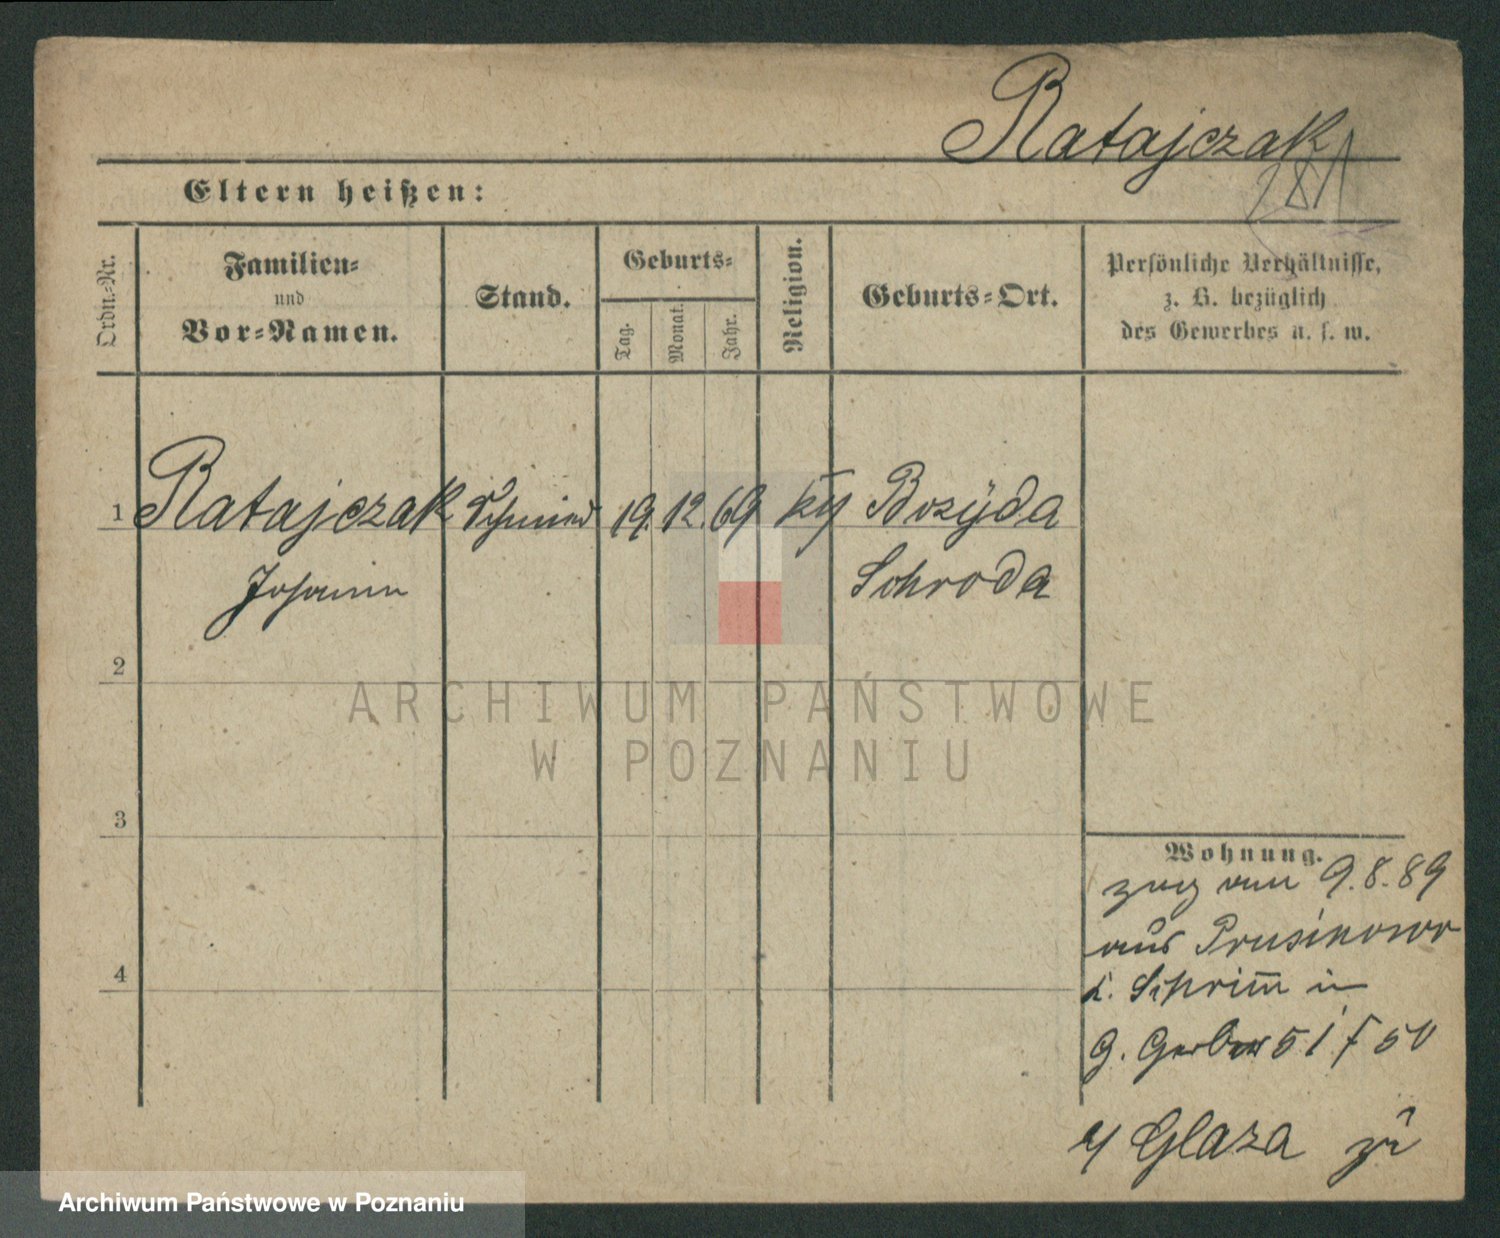 Ratajczak
281
Eltern heißen:
Ordn.-Nr.
Familien-
und
Vor-Namen.
Stand.
Geburts-
Tag.
Monat.
Jahr.
Religion.
Geburts-Ort.
Persönliche Verhältnisse,
z. B. bezüglich
des Gewerbes u. s. w.
1 Ratajczak Schmied 19. 12. 69 Bozÿda
Johann Schroda
2
3
4
Wohnung.
zug am 9.8.89
aus Prusinowo
k. Schrim̄ in
G. Gerber 51 f 50
Glaza zu
ARCHIWUM PAŃSTWOWE
W POZNANIU
Archiwum Państwowe w Poznaniu